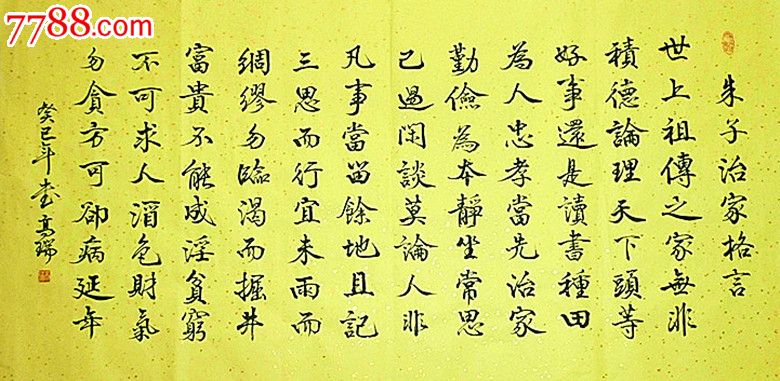 7788.com
朱子治家格言
世上祖傳之家無非
積德論理天下頭等
好事還是讀書種田
為人忠孝當先治家
勤儉為本靜坐常思
己過閑談莫論人非
凡事當留餘地且記
三思而行宜未雨而
綢繆勿臨渴而掘井
富貴不能成淫貧窮
不可求人酒色財氣
勿貪方可卻病延年
癸巳年書高瑞